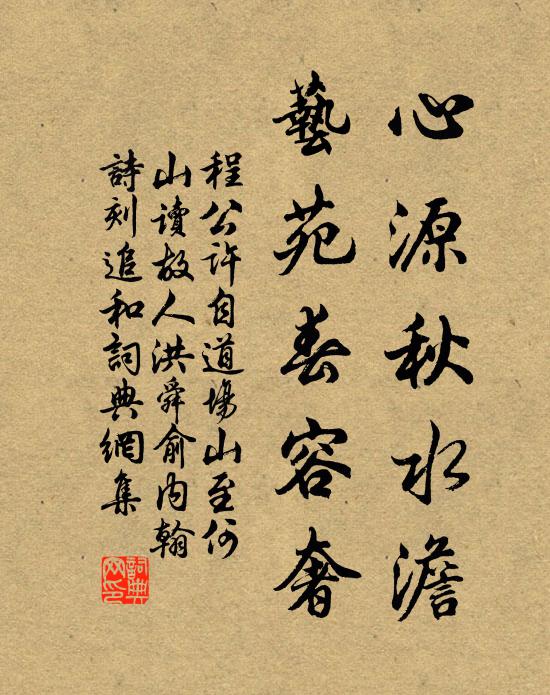 心源秋水澹
藝苑春容奢
程公許自道場山至何
山讀故人洪舜俞內翰
詩刻追和詞典網集
詞典網印